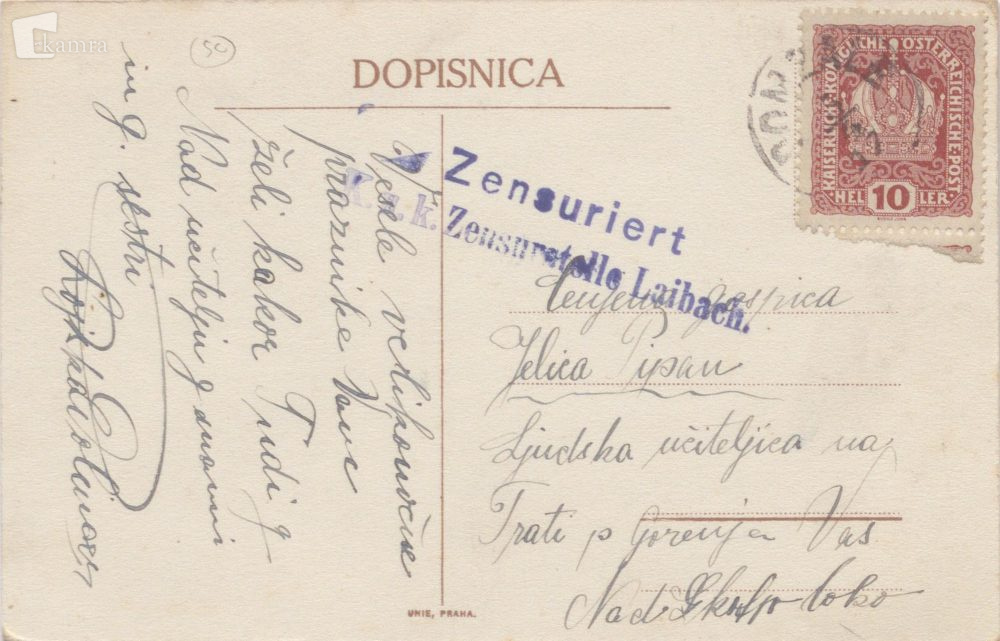 kamra
32
DOPISNICA
KAISERLICHE KÖNIGLICHE ÖSTERREICHISCHE POST
HELLER
10
Zensuriert
K. u. k. Zensurstelle Laibach.
Vesele velikonočne
praznike Vam
želi kakor Tudi g
Nad učitelju g
in g. sestri
Cenjena gospica
Jelica Pipan
Ljudska učiteljica na
Trati p Gorenja Vas
Nad Škofjo Loko
UNIE, PRAHA.